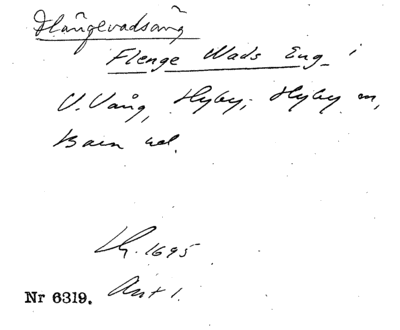 Flängevadsäng
Flenge Wads Eng i
V. Vång, Hyby, Hyby sn,
Bara hd.
1695
Nr 6319. Ant 1.